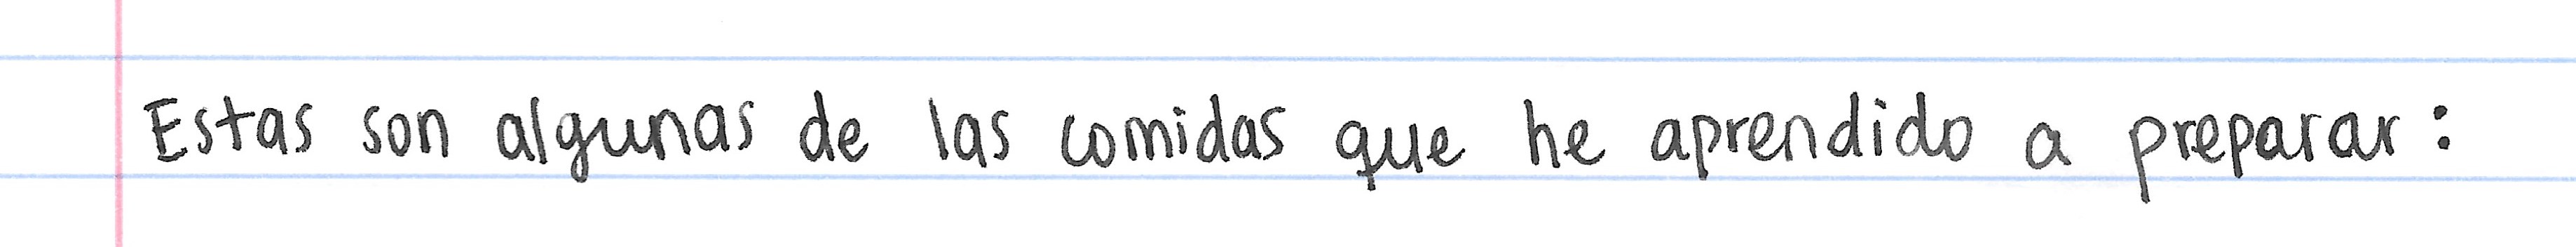 Estas son algunas de las comidas que he aprendido a preparar: